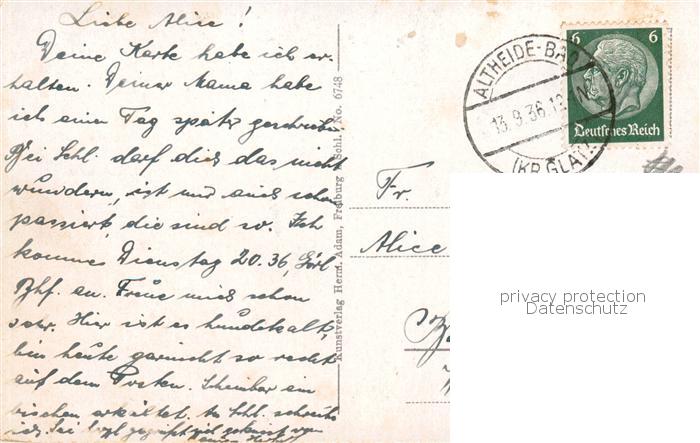 Liebe Alice!
Deine Karte habe ich er-
halten. Deiner Mama habe
ich einen Tag später geschrieben
Bei Schl. darf dich das nicht
wundern, ist uns auch schon
passiert, die sind so. Ich
komme Dienstag 20.36, Görl.
Bhf. an. Freue mich schon
sehr. Hier ist es hundekalt,
bin heute garnicht so recht
auf dem Posten. Scheinbar ein
bischen erkältet. An Schl. schreibe
ich. Sei
Kunstverlag Herm. Adam, Freiburg Schl., No. 6748
ALTHEIDE-BAD
13.9.36.12
(KR. GLATZ)
6 6
Deutsches Reich
Fr.
Alice
privacy protection
Datenschutz